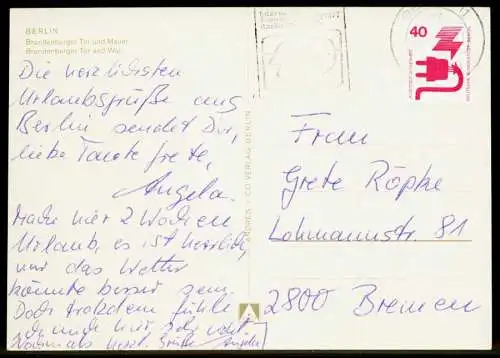 BERLIN
Brandenburger Tor und Mauer
Brandenburger Tor and Wall
Die herzlichsten
Urlaubsgrüße aus
Berlin sendet Dir,
liebe Tante Grete,
Angela.
Mache hier 2 Wochen
Urlaub, es ist herrlich,
nur das Wetter
könnte besser sein.
Doch trotzdem fühle
ich mich hier sehr wohl.
Nochmals herzl. Grüße Angela
ANDRES + CO VERLAG BERLIN
40
DEUTSCHE BUNDESPOST BERLIN
Frau
Grete Röpke
Lohmannstr. 81
2800 Bremen